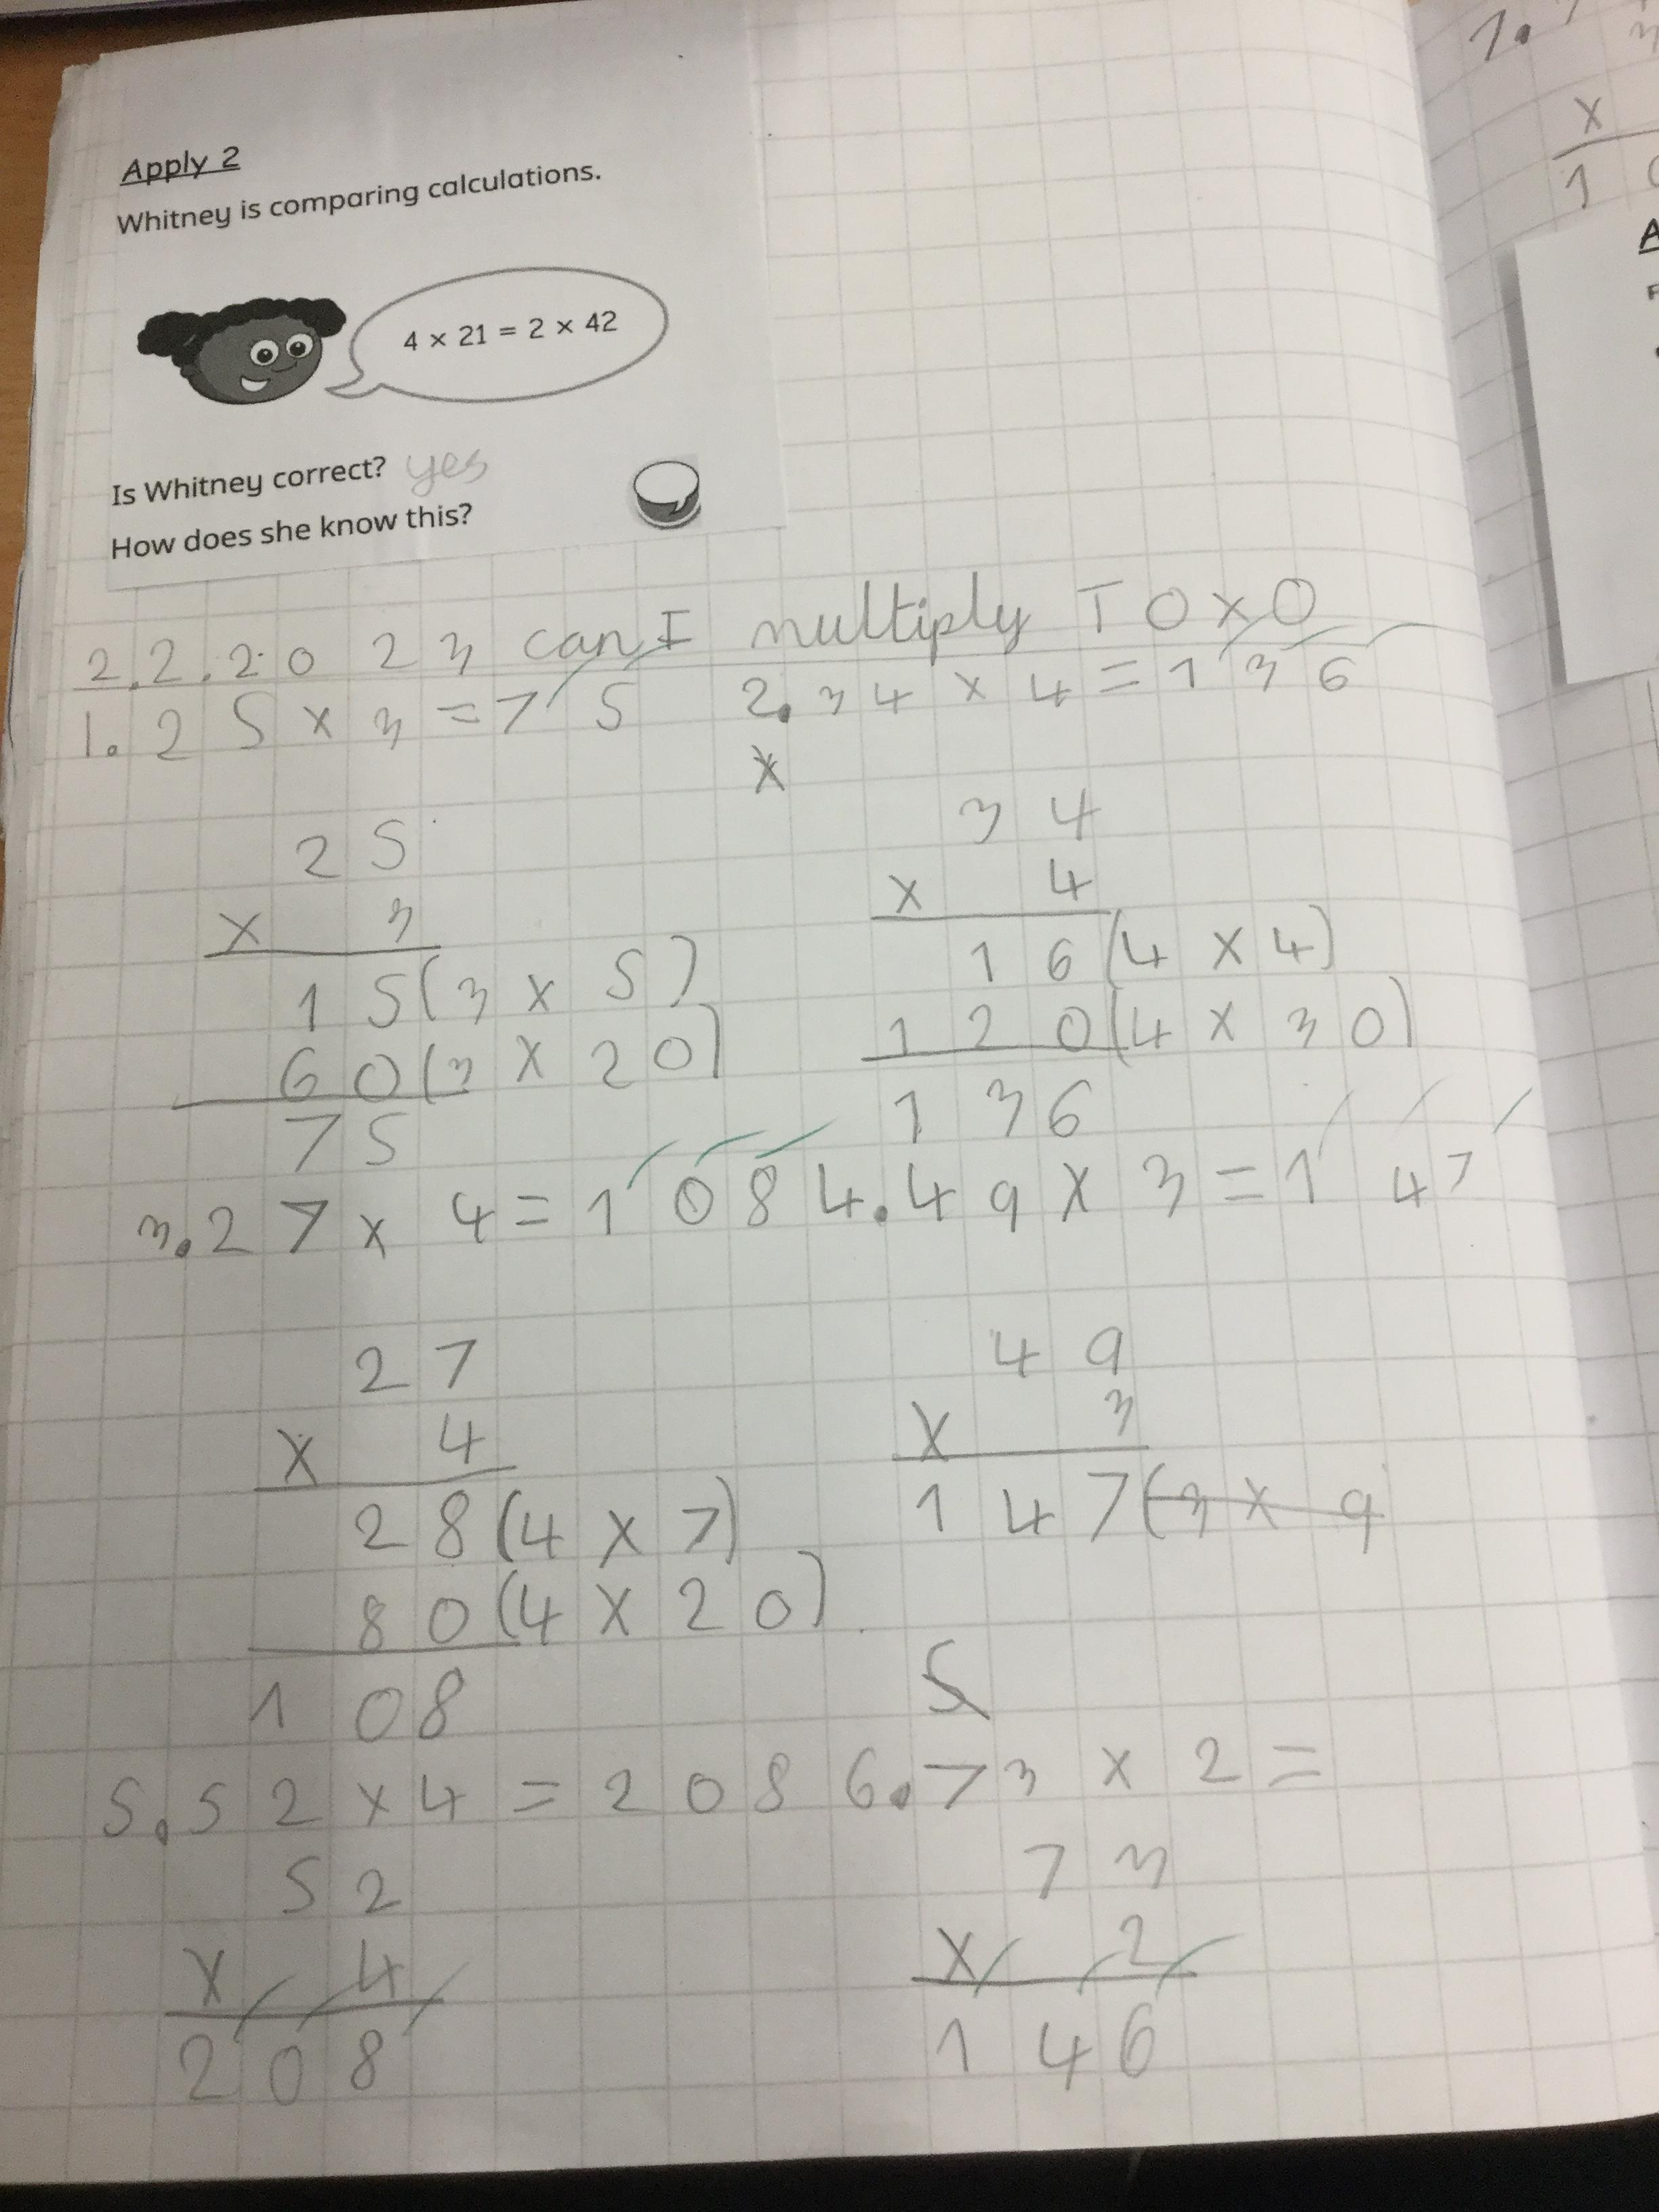 Apply 2
Whitney is comparing calculations.
4 × 21 = 2 × 42
Is Whitney correct? yes
How does she know this?
2.2.2023 can I multiply TO×O
1. 25 × 3 = 75 2. 34 × 4 = 136
x
25
× 3
15 (3 × 5)
60 (3 × 20)
75
34
× 4
16 (4 × 4)
120 (4 × 30)
136
3. 27 × 4 = 108 4. 49 × 3 = 147
27
× 4
28 (4 × 7)
80 (4 × 20)
108
49
× 3
147 (3 × 9
5
5. 52 × 4 = 208 6. 73 × 2 =
52
× 4
208
73
× 2
146
1.
×
1